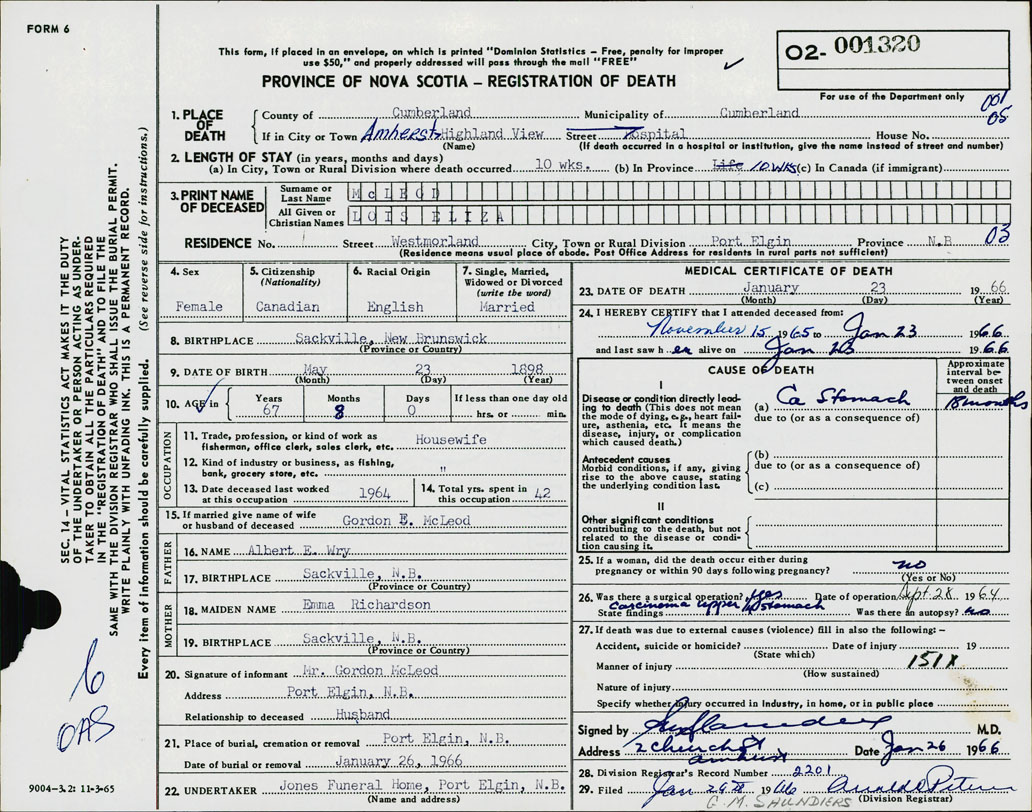 FORM 6
This form, if placed in an envelope, on which is printed "Dominion Statistics – Free, penalty for improper
use $50," and properly addressed will pass through the mail "FREE"
PROVINCE OF NOVA SCOTIA – REGISTRATION OF DEATH
O2- 001320
For use of the Department only
001
05
1. PLACE OF DEATH
County of Cumberland Municipality of Cumberland
If in City or Town Amherst Highland View Street Hospital House No.
(Name) (If death occurred in a hospital or institution, give the name instead of street and number)
2. LENGTH OF STAY (in years, months and days)
(a) In City, Town or Rural Division where death occurred 10 wks. (b) In Province Life 10 WKS (c) In Canada (if immigrant)
3. PRINT NAME OF DECEASED
Surname or Last Name McLEOD
All Given or Christian Names LOIS ELIZA
RESIDENCE No. Street Westmorland City, Town or Rural Division Port Elgin Province N.B 03
(Residence means usual place of abode. Post Office Address for residents in rural parts not sufficient)
4. Sex
Female
5. Citizenship
(Nationality)
Canadian
6. Racial Origin
English
7. Single, Married,
Widowed or Divorced
(write the word)
Married
8. BIRTHPLACE Sackville, New Brunswick
(Province or Country)
9. DATE OF BIRTH May 23 1898
(Month) (Day) (Year)
10. AGE in Years Months Days If less than one day old
67 8 0 hrs. or min.
OCCUPATION
11. Trade, profession, or kind of work as
fisherman, office clerk, sales clerk, etc. Housewife
12. Kind of industry or business, as fishing,
bank, grocery store, etc. "
13. Date deceased last worked
at this occupation 1964
14. Total yrs. spent in
this occupation 42
15. If married give name of wife
or husband of deceased Gordon E. McLeod
FATHER
16. NAME Albert E. Wry
17. BIRTHPLACE Sackville, N.B.
(Province or Country)
MOTHER
18. MAIDEN NAME Emma Richardson
19. BIRTHPLACE Sackville, N.B.
(Province or Country)
20. Signature of informant Mr. Gordon McLeod
Address Port Elgin, N.B.
Relationship to deceased Husband
21. Place of burial, cremation or removal Port Elgin, N.B.
Date of burial or removal January 26, 1966
22. UNDERTAKER Jones Funeral Home, Port Elgin, N.B.
(Name and address)
MEDICAL CERTIFICATE OF DEATH
23. DATE OF DEATH January 23 1966
(Month) (Day) (Year)
24. I HEREBY CERTIFY that I attended deceased from:
November 15 1965 to Jan 23 1966
and last saw her alive on Jan 23 1966
CAUSE OF DEATH
Approximate
interval be-
tween onset
and death
I
Disease or condition directly lead-
ing to death (This does not mean
the mode of dying, e.g., heart fail-
ure, asthenia, etc. It means the
disease, injury, or complication
which caused death.)
(a) Ca Stomach 18 months
due to (or as a consequence of)
Antecedent causes
Morbid conditions, if any, giving
rise to the above cause, stating
the underlying condition last.
(b)
due to (or as a consequence of)
(c)
II
Other significant conditions
contributing to the death, but not
related to the disease or condi-
tion causing it.
25. If a woman, did the death occur either during
pregnancy or within 90 days following pregnancy? no
(Yes or No)
26. Was there a surgical operation? yes Date of operation Sept 28 1964
State findings carcinoma upper stomach Was there an autopsy? no
27. If death was due to external causes (violence) fill in also the following: –
Accident, suicide or homicide? Date of injury 19
(State which)
Manner of injury 151X
(How sustained)
Nature of injury
Specify whether injury occurred in industry, in home, or in public place
Signed by M.D.
Address 2 Church St Amherst Date Jan 26 1966
28. Division Registrar's Record Number 2201
29. Filed Jan 1966
(Division Registrar)
G. M. SAUNDERS
SEC. 14 – VITAL STATISTICS ACT MAKES IT THE DUTY
OF THE UNDERTAKER OR PERSON ACTING AS UNDER-
TAKER TO OBTAIN ALL THE PARTICULARS REQUIRED
IN THE "REGISTRATION OF DEATH" AND TO FILE THE
SAME WITH THE DIVISION REGISTRAR WHO SHALL ISSUE THE BURIAL PERMIT.
WRITE PLAINLY WITH UNFADING INK. THIS IS A PERMANENT RECORD.
Every item of information should be carefully supplied. (See reverse side for instructions.)
6
OAS
9004-3.2: 11-3-65